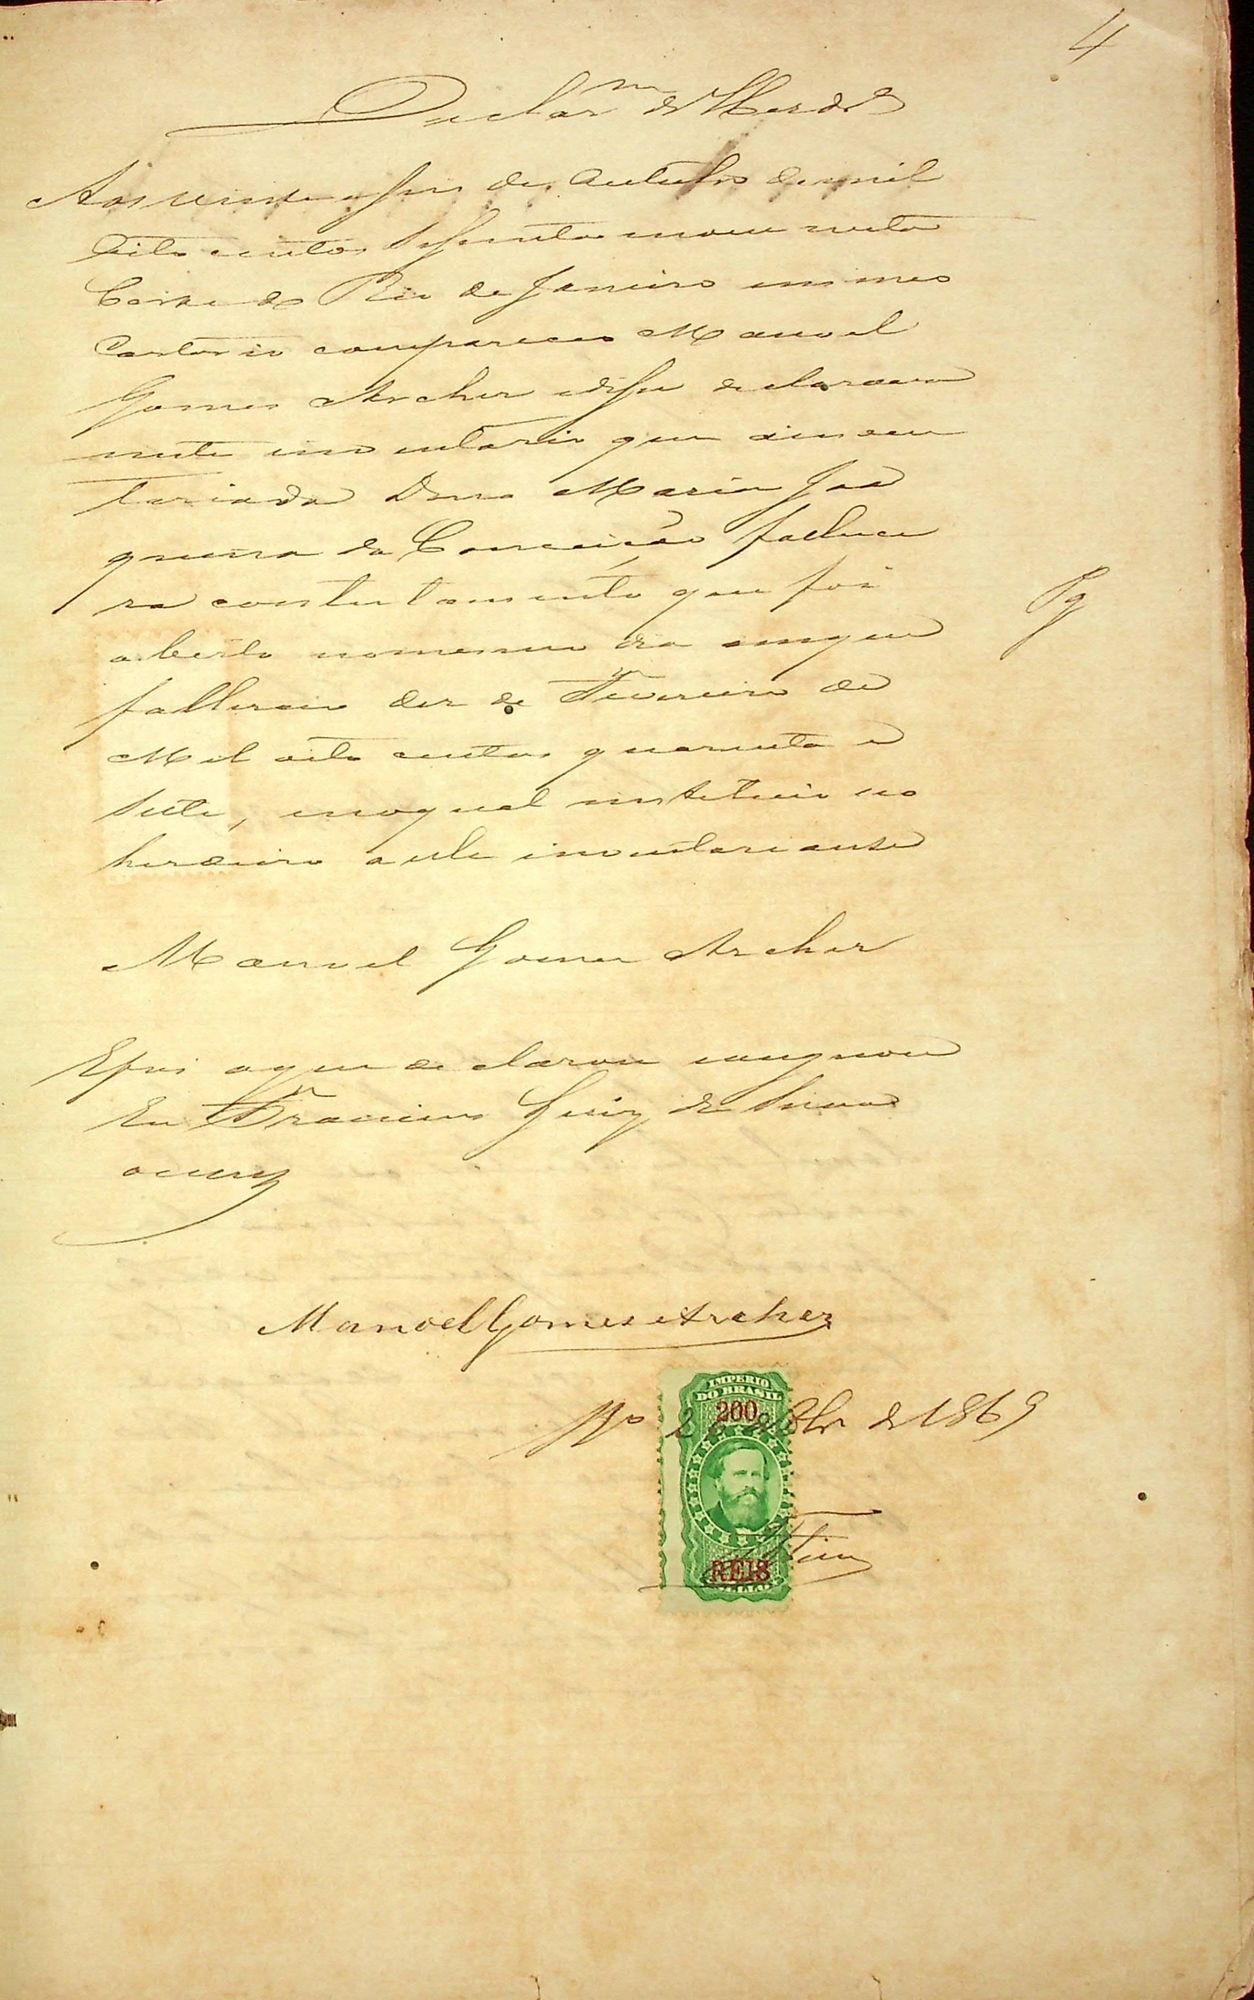 4
Declaram de Herdros
Aos vinte e seis de Outubro de mil
Oito centos Sessenta e nove nesta
Corte do Rio de Janeiro em meo
Cartorio compareceo Manoel
Gomes Archer e disse declarava
neste inventario que a inven
tariada Dona Maria Joa
quina da Conceição fallece
ra com testamento que foi
aberto no mesmo dia em que
falleceo dez de Fevereiro de
Mil oito centos quarenta e
Sete, no qual instituio no
herdeiro a elle inventariante
Pg
Manoel Gomes Archer
E foi o que declarou e assignou
Eu Francisco Luiz da
escrevy
Manoel Gomes Archer
IMPERIO
DO BRASIL
200
Rio 26 de 8bro de 1869
REIS